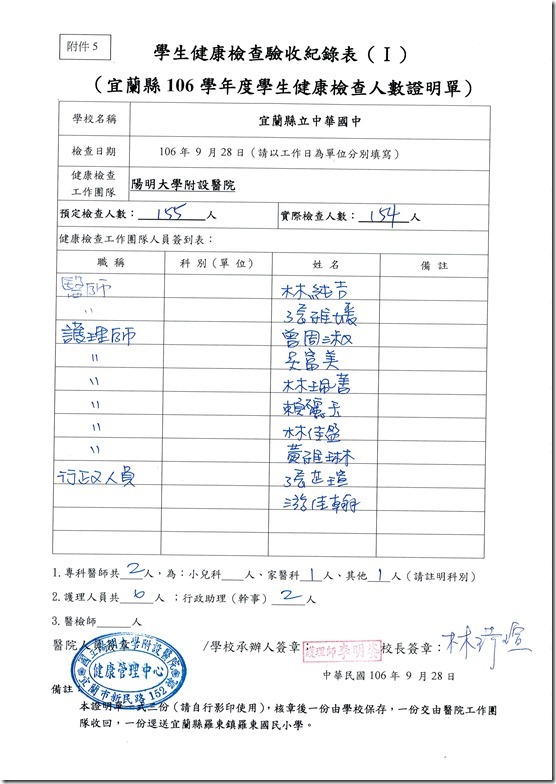 附件 5
學生健康檢查驗收紀錄表（Ⅰ）
（宜蘭縣 106 學年度學生健康檢查人數證明單）
學校名稱 宜蘭縣立中華國中
檢查日期 106 年 9 月 28 日（請以工作日為單位分別填寫）
健康檢查工作團隊 陽明大學附設醫院
預定檢查人數：155人 實際檢查人數：154人
健康檢查工作團隊人員簽到表：
職稱 科別（單位） 姓名 備註
醫師 林純吉
〃
護理師 曾周淑
〃 吳富美
〃 林珮善
〃
〃 林佳盈
〃 黃雅琳
行政人員
游佳翰
1.專科醫師共2人，為：小兒科 人、家醫科1人、其他1人（請註明科別）
2.護理人員共6人 ；行政助理（幹事）2人
3.醫檢師 人
醫院 /學校承辦人簽章： 護理師 校長簽章：
國立陽明大學附設醫院
健康管理中心
宜蘭市新民路152號
中華民國 106 年 9 月 28 日
備註：
本證明單一式三份（請自行影印使用），核章後一份由學校保存，一份交由醫院工作團
隊收回，一份逕送宜蘭縣羅東鎮羅東國民小學。